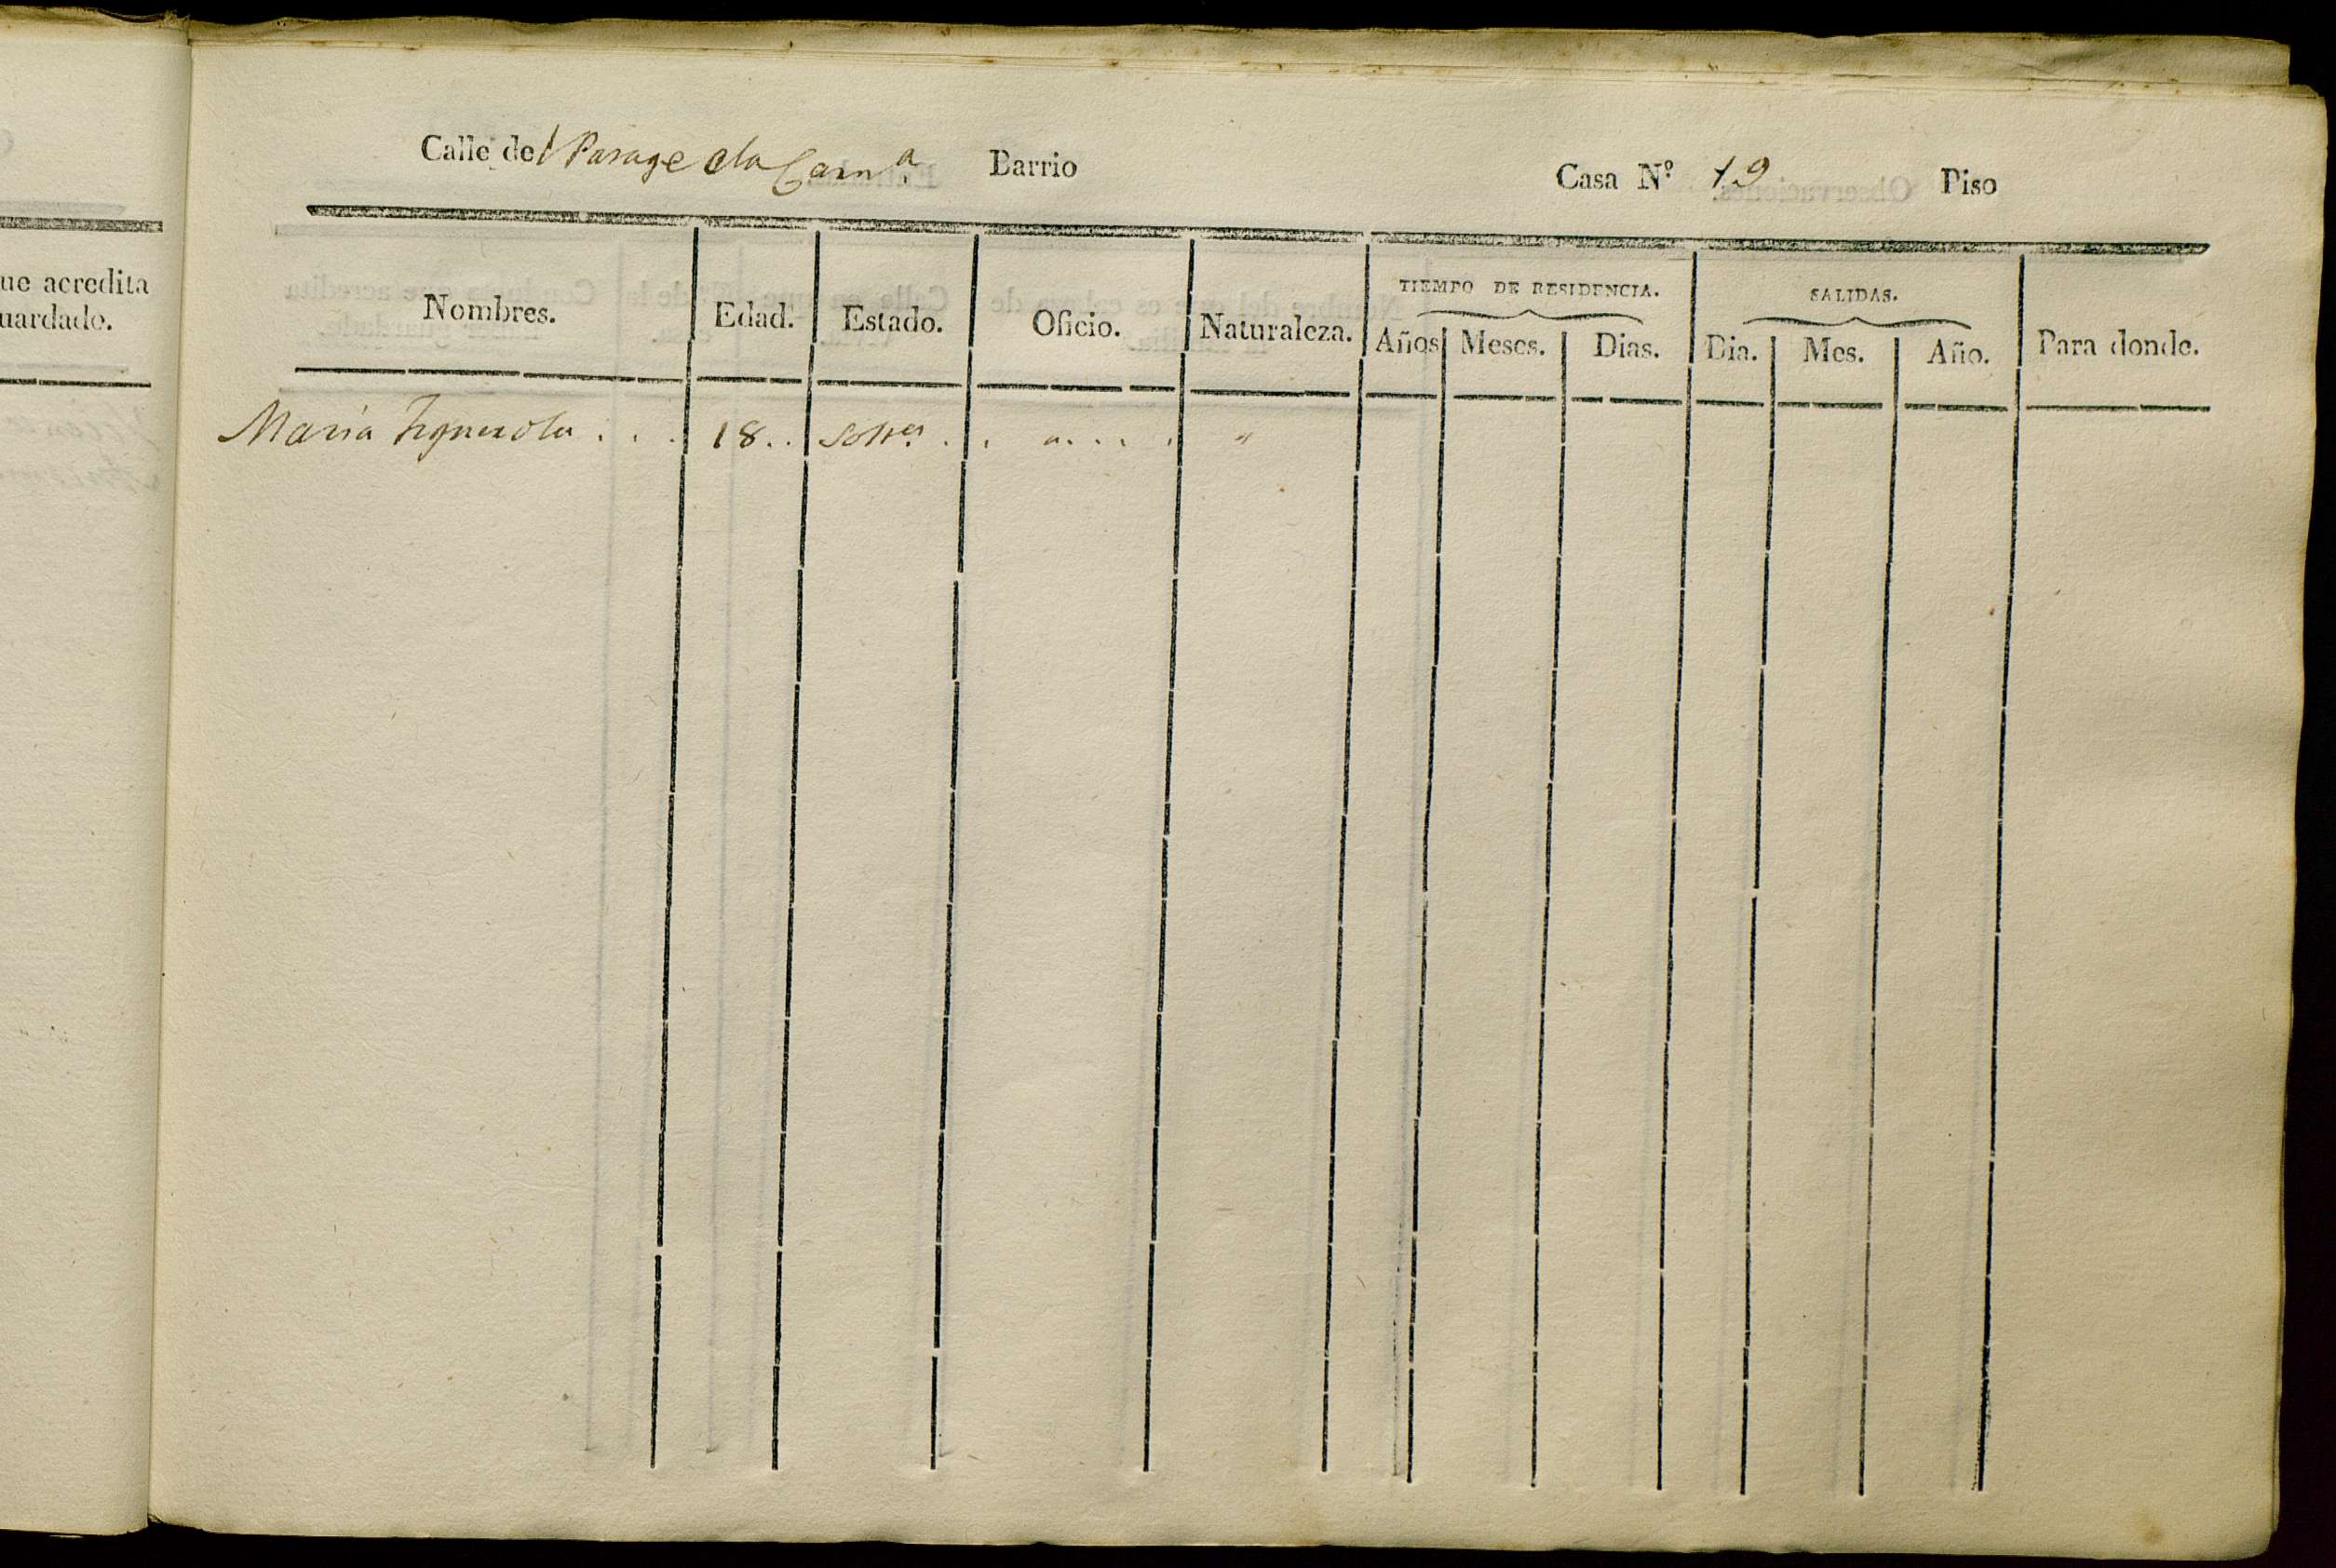 ue acredita
uardado.
Calle del Parage de la Carn.ª Barrio Casa N.º 19 Piso
Nombres. Edad. Estado. Oficio. Naturaleza. TIEMPO DE RESIDENCIA. Años Meses. Dias. SALIDAS. Dia. Mes. Año. Para donde.
Maria Figuerola . . . 18 . . Solt.ª . . " . . . . "